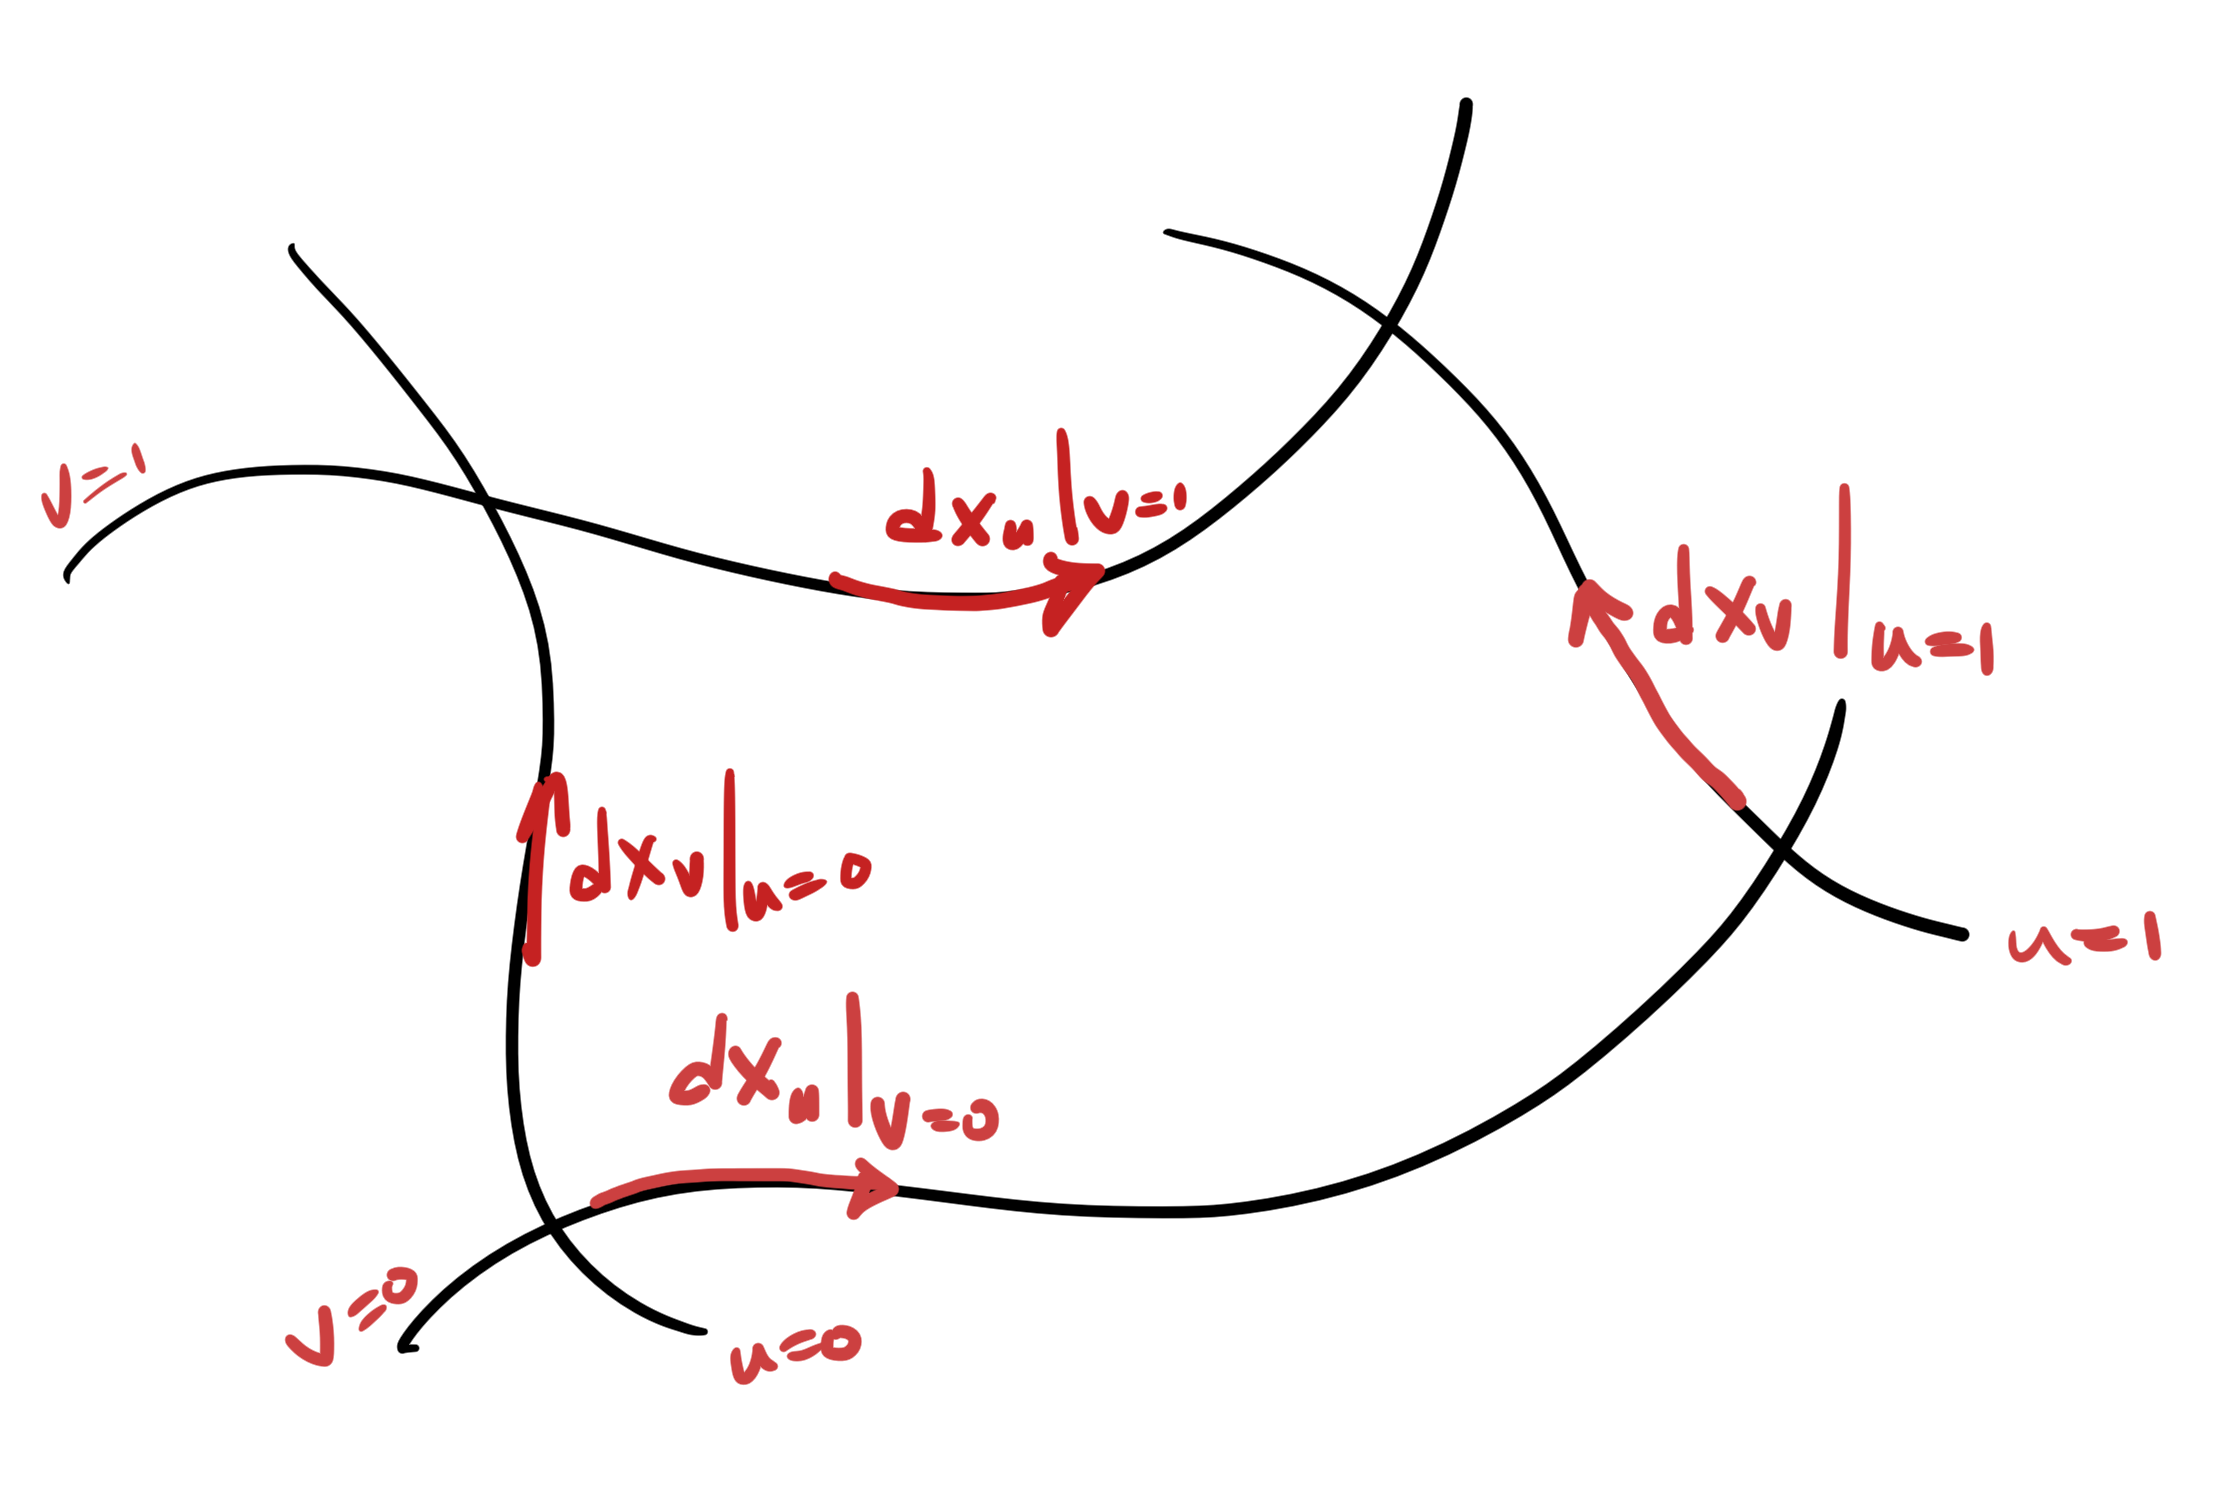 v=1
dx_u|v=1
dx_v|u=1
dx_v|u=0
u=1
dx_u|v=0
v=0
u=0